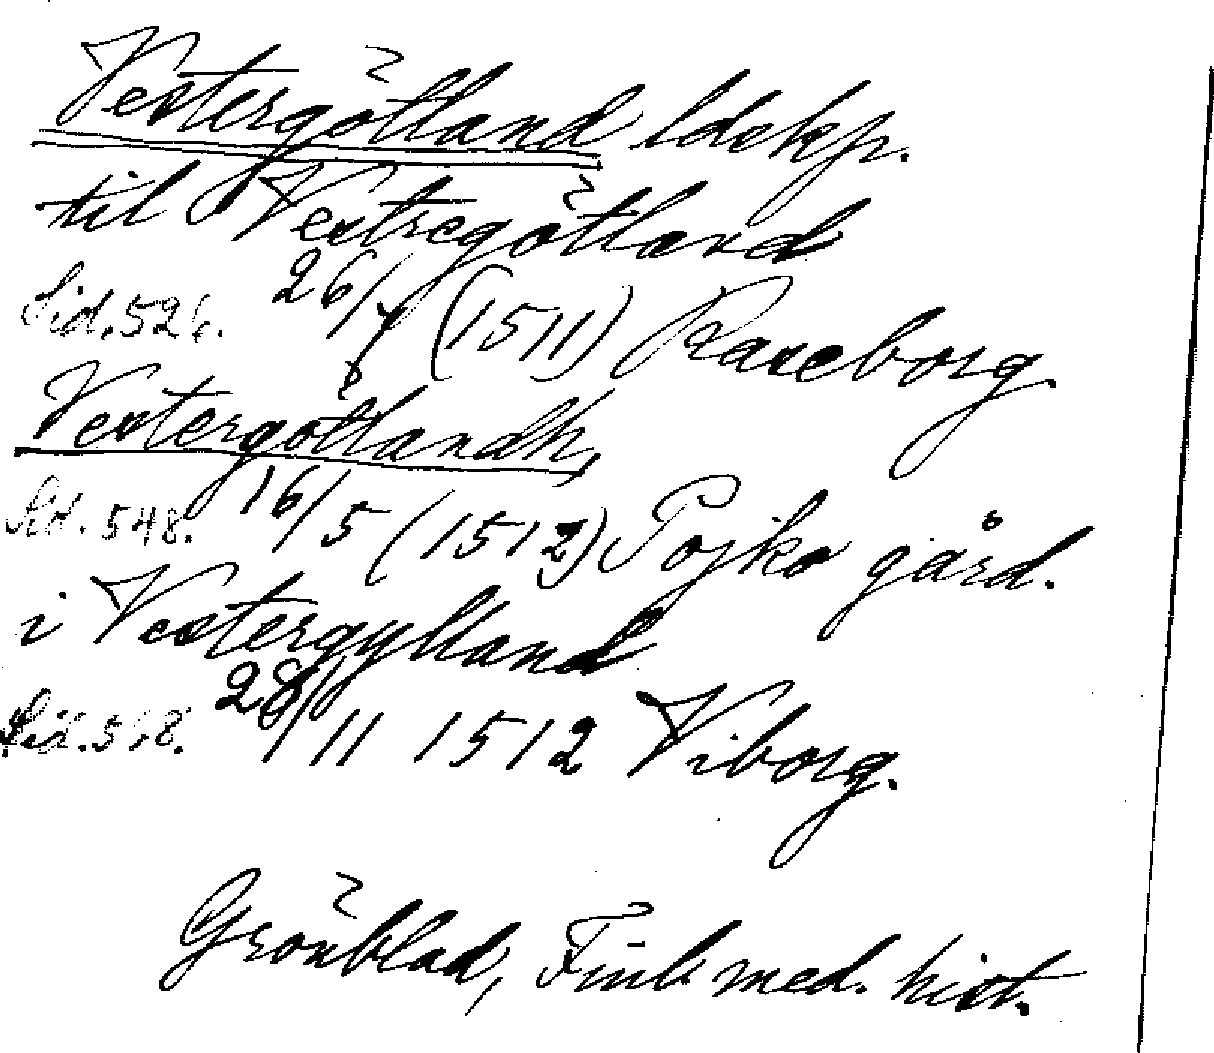 Vestergötland ldskp.
til Vestregötland
Sid. 526. 26/7 (1511) Raseborg.
Vestergötlandh,
Sid. 548. 16/5 (1512) Pojko gård.
i Vestergylland
Sid. 568. 28/11 1512 Viborg.
Grönblad, Finl. med. hist.